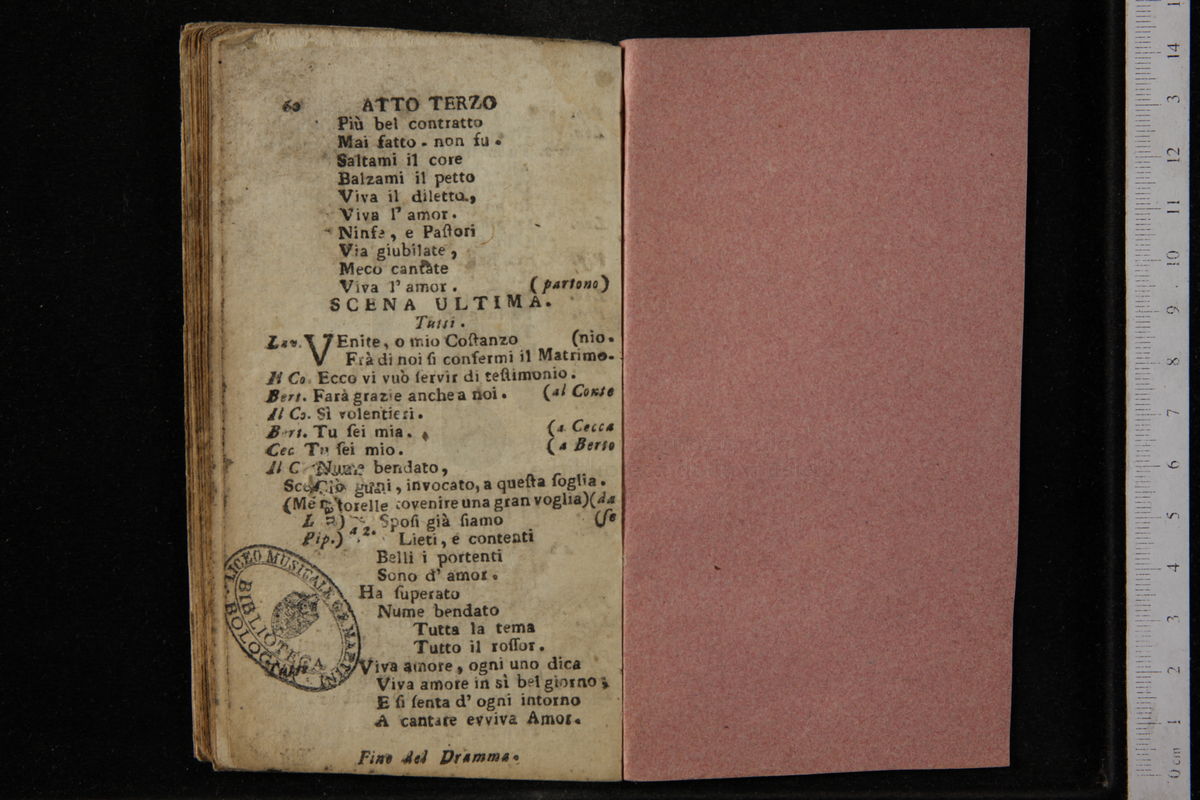 60 ATTO TERZO
Più bel contratto
Mai fatto - non fu.
Saltami il core
Balzami il petto
Viva il diletto,
Viva l' amor.
Ninfe, e Paſtori
Via giubilate,
Meco cantate
Viva l' amor. (partono)
SCENA ULTIMA.
Tutti.
Lau. VEnite, o mio Coſtanzo (nio.
Frà di noi ſi confermi il Matrimo-
Il Co. Ecco vi vuò ſervir di teſtimonio.
Bert. Farà grazie anche a noi. (al Conte
Il Co. Sì volentieri.
Bert. Tu ſei mia. (a Cecca
Cec Tu ſei mio. (a Berto
Il C Nume bendato,
guni, invocato, a queſta ſoglia.
venire una gran voglia) (da
L ) Spoſi già ſiamo (ſe
Pip.) a 2. Lieti, e contenti
Belli i portenti
Sono d' amor.
Ha ſuperato
Nume bendato
Tutta la tema
Tutto il roſſor.
Viva amore, ogni uno dica
Viva amore in sì bel giorno;
E ſi ſenta d' ogni intorno
A cantare evviva Amor.
Fine del Dramma.
LICEO MUSICALE G.B. MARTINI
BIBLIOTECA
BOLOGNA
0 cm 1 2 3 4 5 6 7 8 9 10 11 12 3 14